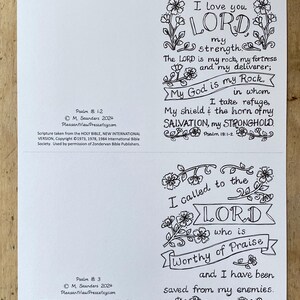 I love you,
LORD,
my
strength.
The LORD is my rock, my fortress
and my deliverer;
My God is my Rock,
in whom
I take refuge,
My shield & the horn of my
SALVATION, my STRONGHOLD
Psalm 18:1-2
Psalm 18: 1-2
© M. Saunders 2024
PleasantViewPress.etsy.com
Scripture taken from the HOLY BIBLE, NEW INTERNATIONAL
VERSION, Copyright ©1973, 1978, 1984 International Bible
Society. Used by permission of Zondervan Bible Publishers.
I called to the
LORD
who is
Worthy of Praise
and I have been
saved from my enemies.
Psalm 18: 3
© M. Saunders 2024
PleasantViewPress.etsy.com